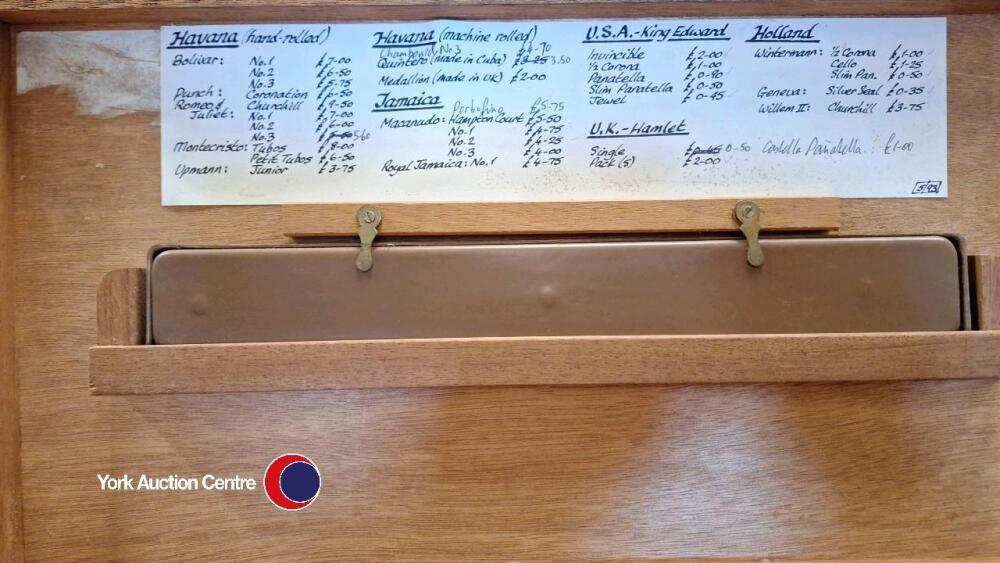 Havana (hand-rolled)
Bolivar: No.1 £7-00
No.2 £6-50
No.3 £5-75
Punch: Coronation £6-50
Romeo & Churchill £9-50
Juliet: No.1 £7-00
No.2 £6-00
No.3 5.60
Montecristo: Tubos £8-00
Petit Tubos £6-50
Upmann: Junior £3-75
Havana (machine rolled)
No3 £4-70
Quintero (made in Cuba) 3.50
Medallion (made in UK) £2-00
Jamaica
Portofino £5-75
Macanudo: Hampton Court £5-50
No.1 £4-75
No.2 £4-25
No.3 £4-00
Royal Jamaica: No.1 £4-75
U.S.A.-King Edward
Invincible £2-00
½ Corona £1-00
Panatella £0-90
Slim Panatella £0-50
Jewel £0-45
U.K.-Hamlet
Single £0-45 0-50
Pack (5) £2-00
Castella Panatella : £1-00
Holland
Wintermann: ½ Corona £1-00
Cello £1-25
Slim Pan. £0-50
Geneva: Silver Seal £0-35
Willem II: Churchill £3-75
5/93
York Auction Centre